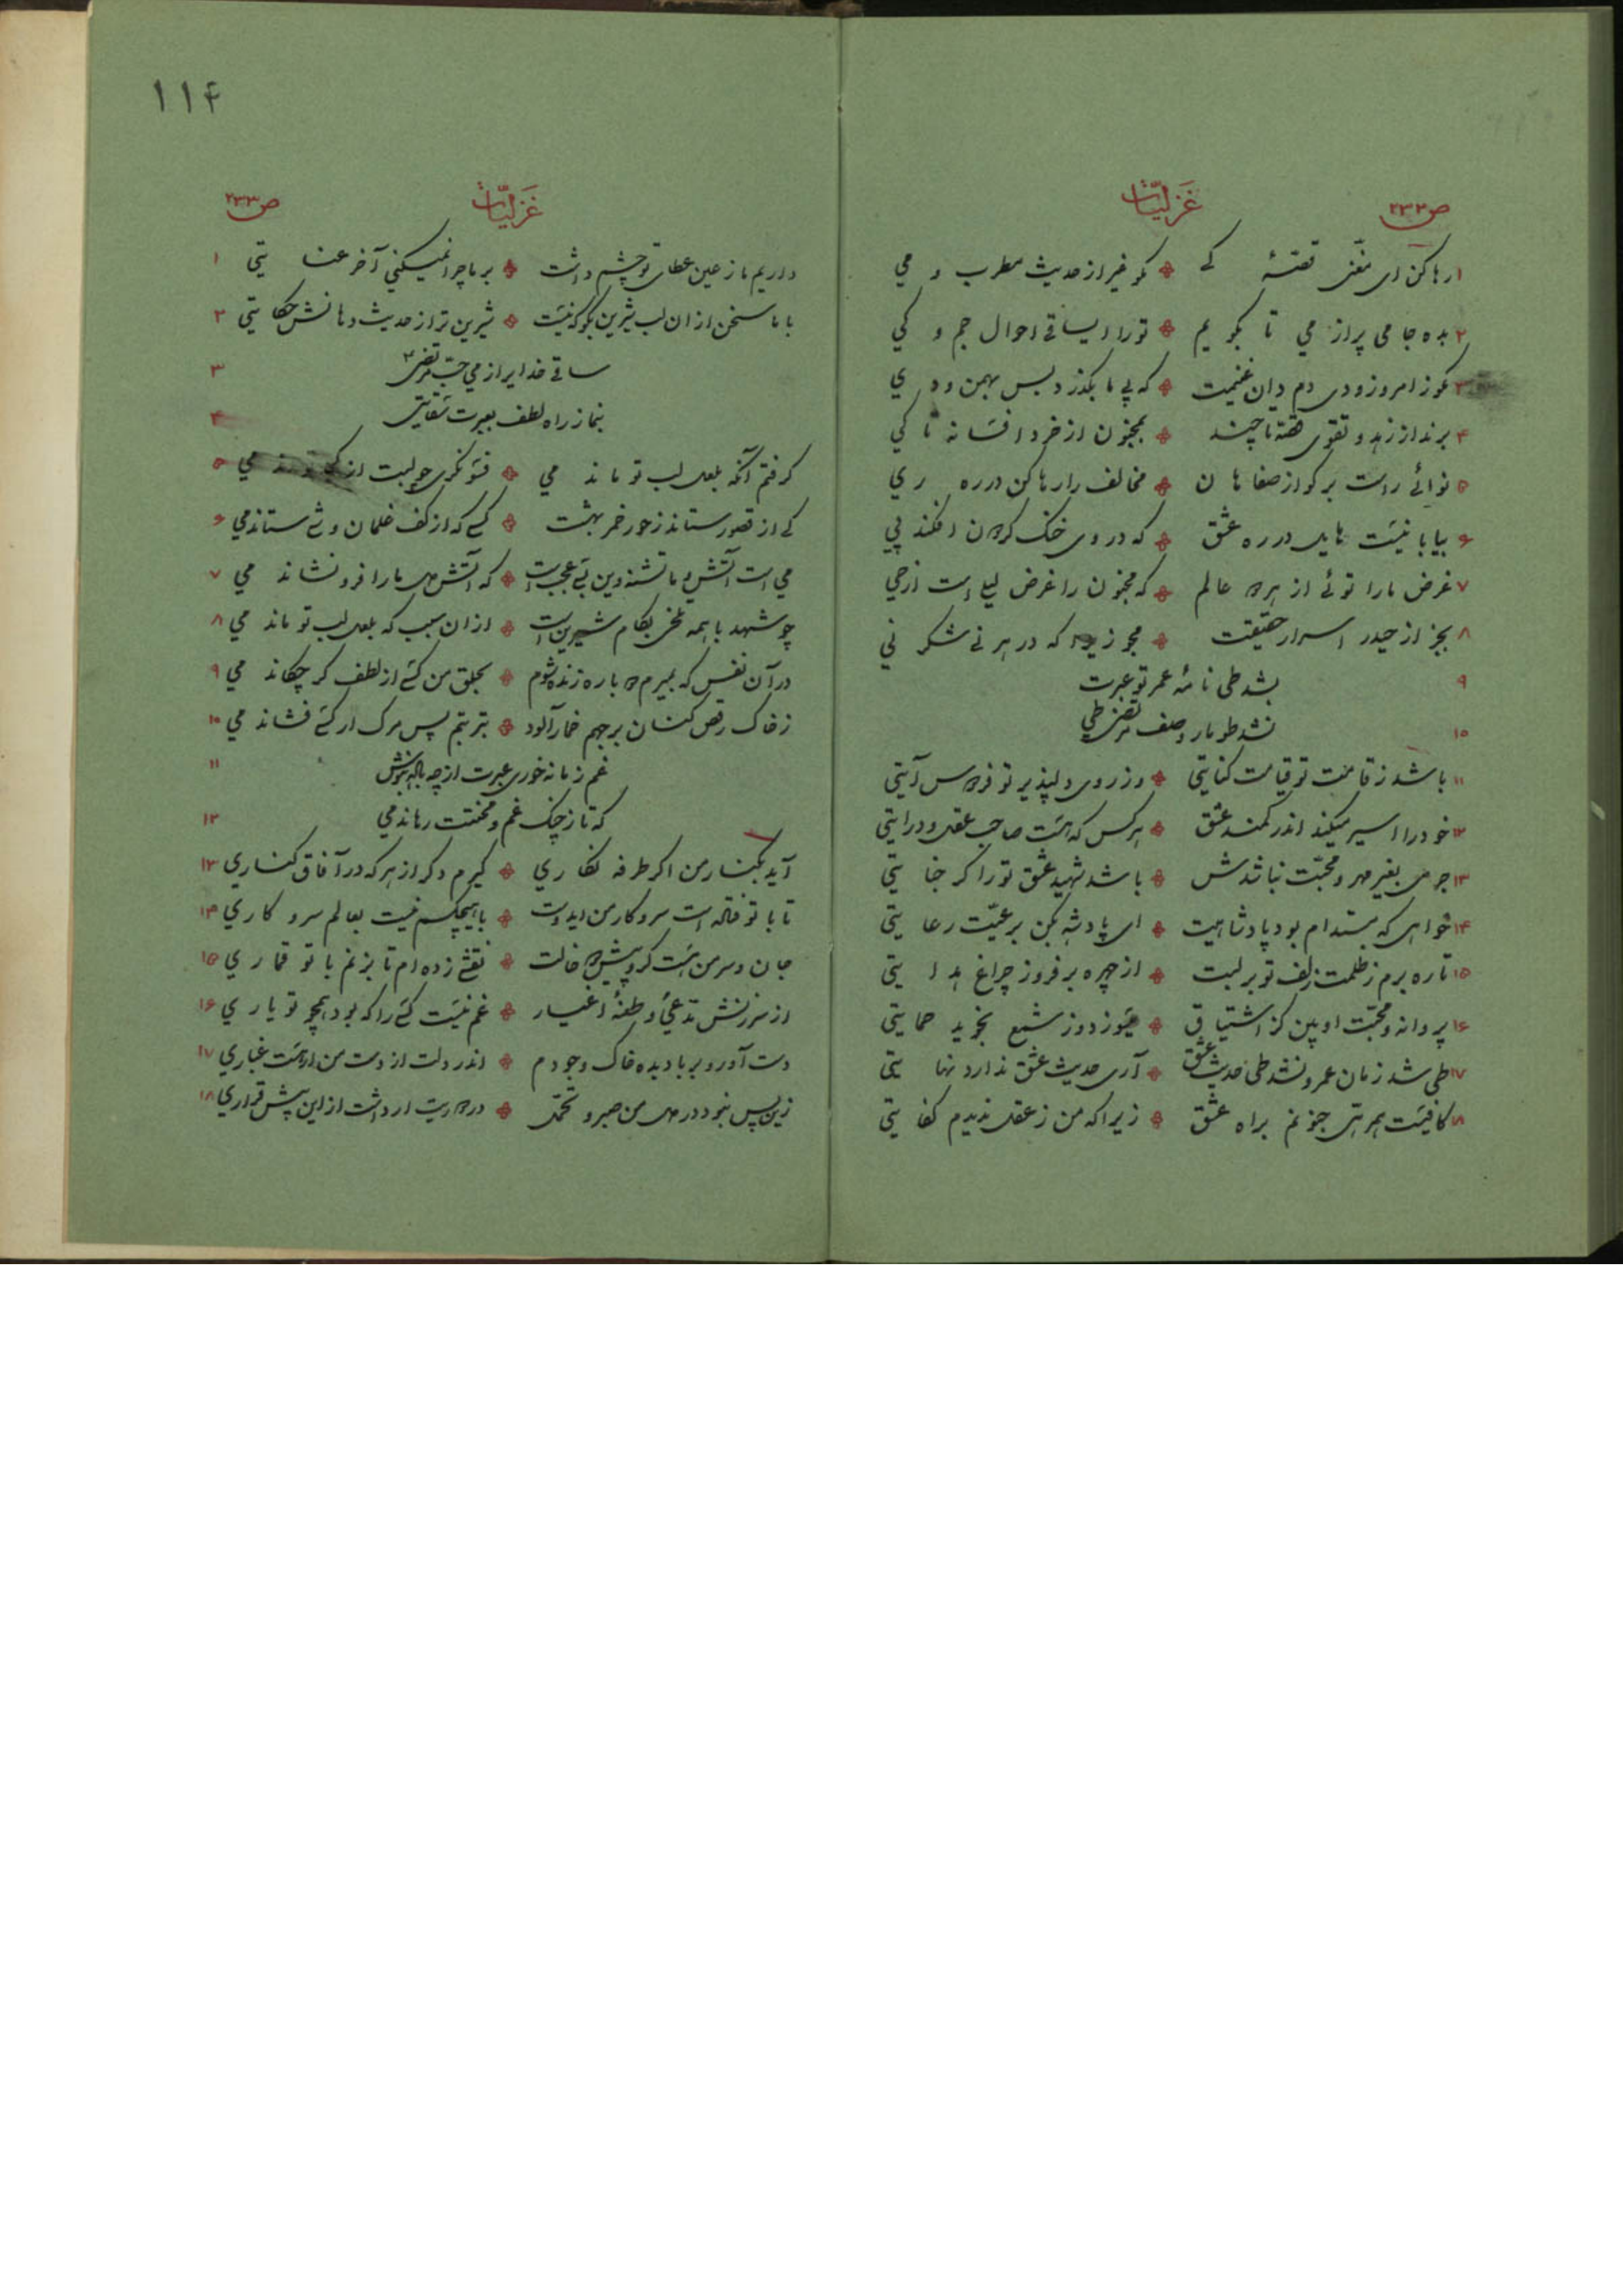 ص۲۳۲ غزلیّات
۱ رها کن ای مغنّی قصّهٔ کے ٭ مگو غیر از حدیث مطرب و می
۲ بده جامی پر از می تا بگویم ٭ تو را ایساقی احوال جم و کی
۳ مگو ز امروز و دی دم دان غنیمت ٭ که پی ما بگذرد بس بهمن و دی
۴ برند از زهد و تقوی قصّه تا چند ٭ بمجنون از خرد افسانه تا کی
۵ نوائے راست برگو از صفاهان ٭ مخالف را رها کن در ره ری
۶ بیابانیست هایل در ره عشق ٭ که در وی خنک گردون افکند پی
۷ غرض ما را توئے از هر دو عالم ٭ که مجنون را غرض لیلے است از حی
۸ بجز از حیدر اسرار حقیقت ٭ مجو زیرا که در هر نے شکر نی
۹ بشد طی نامهٔ عمر تو عبرت
۱۰ نشد طومار وصف مرتضی طی
۱۱ باشد ز قامتت تو قیامت کنایتی ٭ وز روی دلپذیر تو فردوس آیتی
۱۲ خود را اسیر میکند اندر کمند عشق ٭ هر کس که هست صاحب عقل و درایتی
۱۳ جرمی بغیر مهر و محبّت نباشدش ٭ باشد شهید عشق تو را گر جنایتی
۱۴ خواهی که مستدام بود پادشاهیت ٭ ای پادشه بکن برعیّت رعایتی
۱۵ تا ره برم ز ظلمت زلف تو بر لبت ٭ از چهره برفروز چراغ هدایتی
۱۶ پروانه و محبّت او بین کز اشتیاق ٭ میسوزد و ز شمع نجوید حمایتی
۱۷ طی شد زمان عمر و نشد طی حدیث عشق ٭ آری حدیث عشق ندارد نهایتی
۱۸ کافیست همرهی جنونم براه عشق ٭ زیرا که من ز عقل ندیدم کفایتی
۱۱۴
غزلیّات ص۲۳۳
داریم ما ز عین عطای تو چشم داشت ٭ بر ما چرا نمیکنی آخر عنایتی ۱
با ما سخن از ان لب شیرین بگو که نیست ٭ شیرین تر از حدیث دهانش حکایتی ۲
ساقی خدایرا ز می حبّ مرتضی ۳
بنما ز راه لطف بعبرت سقایتی ۴
گرفتم آنکه بلعل لب تو ماند می ٭ فسونگری چو لبت از کجا ... می ۵
کے از قصور ستاند ز حور خمر بهشت ٭ کسے که از کف غلمان وشے ستاند می ۶
می است آتش و ما تشنه وین بسے عجب است ٭ که آتش دل ما را فرو نشاند می ۷
چو شهد با همه تلخی بکام شیرین است ٭ از ان سبب که بلعل لب تو ماند می ۸
در آن نفس که بمیرم دوباره زنده شوم ٭ بحلق من کسے از لطف گر چکاند می ۹
ز خاک رقص کنان بر جهم خمار آلود ٭ بتربتم پس مرگ ار کسے فشاند می ۱۰
غم زمانه خوری عبرت از چه باده بنوش ۱۱
که تا ز چنگ غم و محنتت رهاند می ۱۲
آید بکنار من اگر طرفه نگاری ٭ گیرم دگر از هر که در آفاق کناری ۱۳
تا با تو فتاده است سر و کار من ایدوست ٭ با هیچکسم نیست بعالم سر و کاری ۱۴
جان و سر من هست گرو پیش دو خالت ٭ نقشے زده ام تا بزنم با تو قماری ۱۵
از سرزنش مدّعی و طعنهٔ اغیار ٭ غم نیست کسے را که بود همچو تو یاری ۱۶
دست آور و بر باد بده خاک وجودم ٭ اندر دلت از دست من ار هست غباری ۱۷
زین پس نبود در دل من صبر و تحمّل ٭ در دوریت ار داشت از این پیش قراری ۱۸